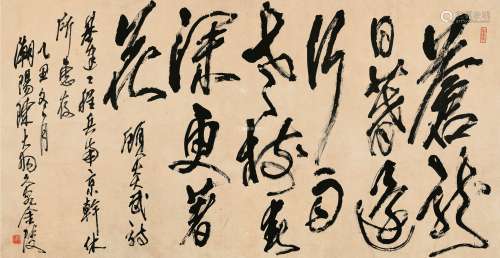 蒼龍
日暮還
行雨
老樹春
深更著
花
顧炎武詩
基建工程兵南京幹休
所惠存
乙丑冬月
潮陽陳大羽客金陵